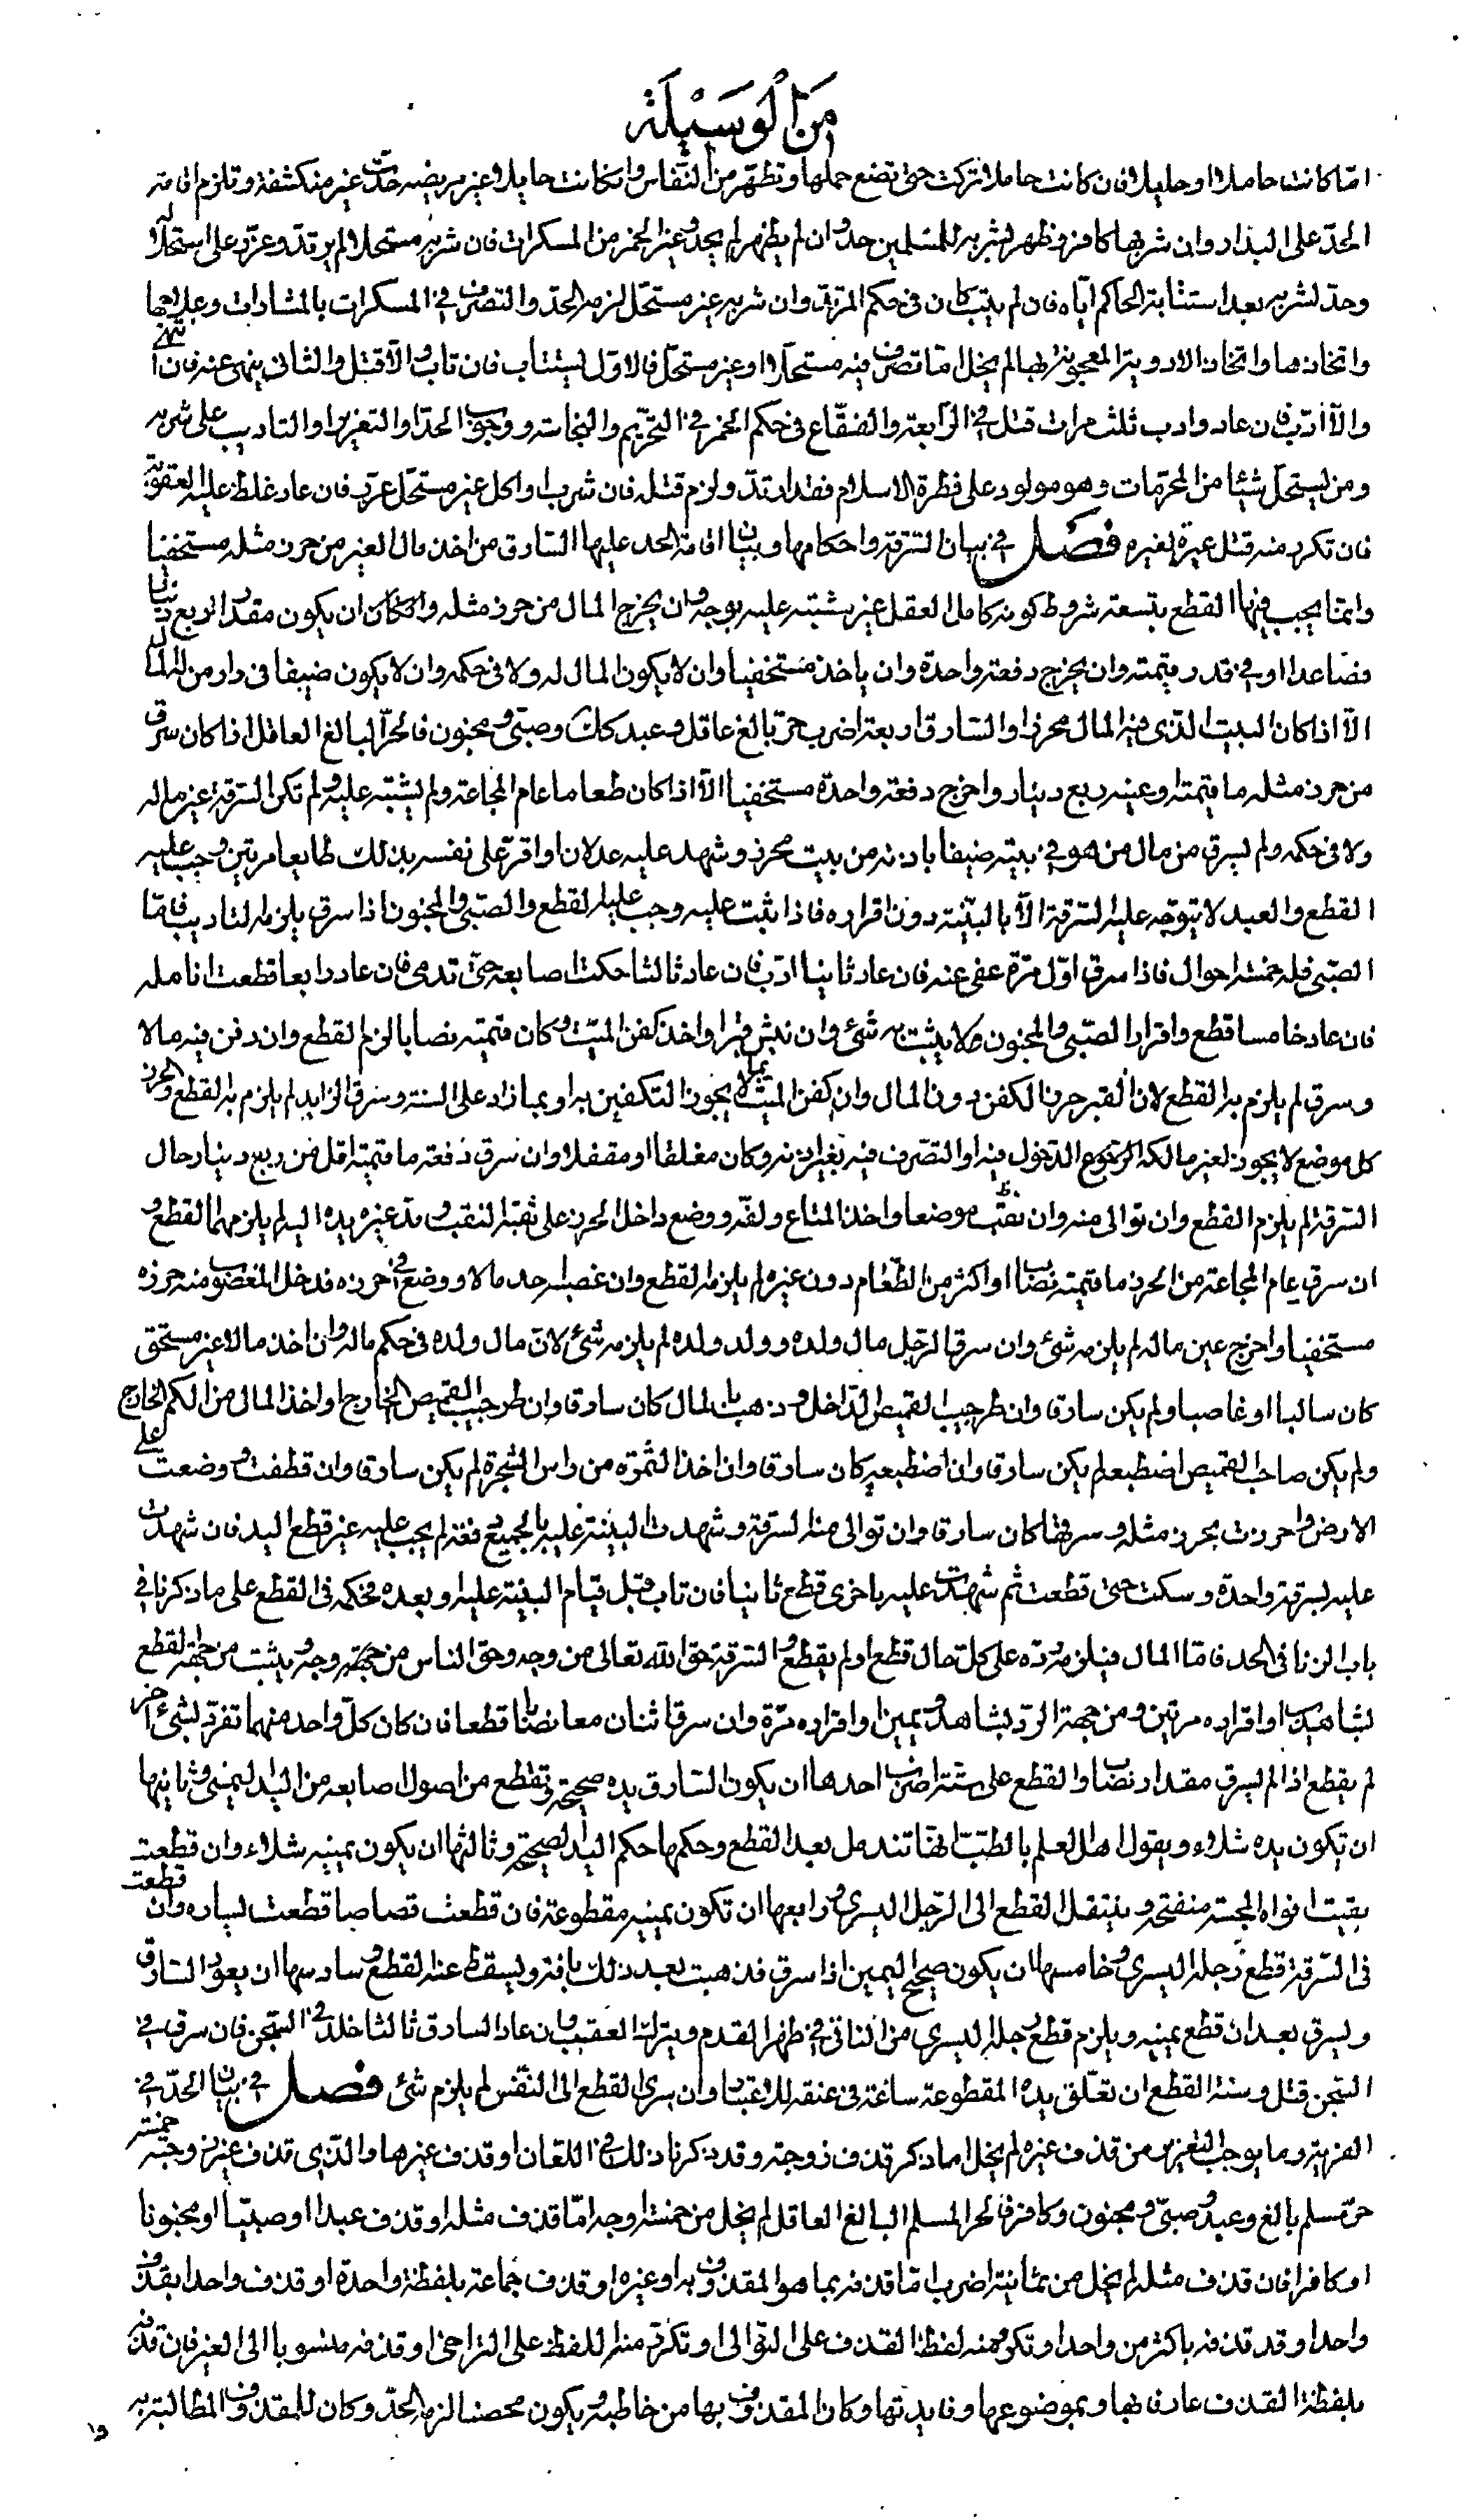 من الوسيلة
اما كانت حاملا او حايلا فان كانت حاملا تركت حتى تضع حملها وتطهر من النفاس وان كانت حايلا غير مريضة حدت غير منكشفة وتلزم اقامة
الحد على البدار وان شربها كافر فظهر شربه للمسلمين حد وان لم يظهر لم يحد وغير الخمر من المسكرات فان شربه مستحلا لم يرتد وعزر على استحلاله
وحد لشربه بعد استتابة الحاكم اياه فان لم يتب كان في حكم المرتد وان شربه غير مستحل لزمه الحد والتصرف في المسكرات بالمشارات وعلاجها
واتخاذها واتخاذ الادوية المعجونة بها لم يخل اما تصرف فيه مستحلا او غير مستحل فالاول يستتاب فان تاب والا قتل والثاني ينهى عنه فان انتهى
والا ادب فان عاد وادب ثلث مرات قتل في الرابعة والفقاع في حكم الخمر في التحريم والنجاسة ووجوب الحد او التعزير او التاديب على شربه
ومن يستحل شيئا من المحرمات وهو مولود على فطرة الاسلام فقد ارتد ولزم قتله فان شرب او اكل غير مستحل عزر فان عاد غلظ عليه العقوبة
فان تكرر منه قتل عبرة لغيره فصل في بيان السرقة واحكامها وبيان اقامة الحد عليها السارق من اخذ مال الغير من حرز مثله مستخفيا
وانما يجب فيها القطع بتسعة شروط كونه كامل العقل غير مشتبه عليه بوجه وان يخرج المال من حرز مثله وان كان ان يكون مقدار ربع دينار
فصاعدا او في قدر قيمته وان يخرج دفعة واحدة وان ياخذ مستخفيا وان لا يكون المال له ولا في حكمه وان لا يكون ضيفا في دار من له المال
الا اذا كان البيت الذي فيه المال محرزا والسارق اربعة اضرب حر بالغ عاقل وعبد كذلك وصبي ومجنون فالحر البالغ العاقل اذا كان سرق
من حرز مثله ما قيمته او عينه ربع دينار واخرج دفعة واحدة مستخفيا الا اذا كان طعاما عام المجاعة ولم يشتبه عليه ولم تكن السرقة غير ماله
ولا في حكمه ولم يسرق من مال من هو في بيته ضيفا باذنه من بيت محرز وشهد عليه عدلان او اقر على نفسه بذلك طايعا مرتين وجب عليه
القطع والعبد لا يتوجه عليه السرقة الا بالبينة دون اقراره فاذا ثبت عليه وجب عليه القطع والصبي والمجنون اذا سرق يلزمه التاديب فاما
الصبي فله خمسة احوال فاذا سرق اول مرة عفى عنه فان عاد ثانيا ادب فان عاد ثالثا حكت اصابعه حتى تدمى فان عاد رابعا قطعت انامله
فان عاد خامسا قطع واقرار الصبي والمجنون لا يثبت به شئ وان نبش قبرا واخذ كفن الميت وكان قيمته نصابا لزم القطع وان دفن فيه مالا
وسرق لم يلزم به القطع لان القبر حرز الكفن دون المال وان كفن الميت بما لا يجوز التكفين به او بما زاد على السنة وسرق الزايد لم يلزم به القطع والحرز
كل موضع لا يجوز لغير مالكه الدخول فيه او التصرف فيه بغير اذنه وكان مغلقا او مقفلا وان سرق دفعة ما قيمته اقل من ربع دينار حال
السرقة لم يلزم القطع وان توالى منه وان نقب موضعا واخذ المتاع ولفه ووضع داخل الحرز على نقبة النقب ومد غيره يده اليه لم يلزمهما القطع و
ان سرق عام المجاعة من الحرز ما قيمته نصاب او اكثر من الطعام دون غيره لم يلزمه القطع وان غصب احد مالا ووضع في حرزه فدخل المغصوب منه حرزه
مستخفيا واخرج عين ماله لم يلزمه شئ وان سرق الرجل مال ولده وولد ولده لم يلزمه شئ لان مال ولده في حكم ماله وان اخذ مالا غير مستحق
كان سالبا او غاصبا ولم يكن سارقا وان طر جيب القميص الداخل وذهب بالمال كان سارقا وان طر جيب القميص الخارج او اخذ المال من الكم الخارج
ولم يكن صاحب القميص اضطبعه لم يكن سارقا وان اضطبع به كان سارقا وان اخذ الثمرة من راس الشجرة لم يكن سارقا وان قطفت ووضعت على
الارض واحرزت بحرز مثله وسرقها كان سارقا وان توالى منه السرقة وشهدت البينة عليه بالجميع دفعة لم يجب عليه غير قطع اليد فان شهدت
عليه بسرقة واحدة وسكت حتى قطعت ثم شهدت عليه باخرى قطع ثانيا فان تاب قبل قيام البينة عليه او بعده فحكمه في القطع على ما ذكرنا في
باب الزنا في الحد فاما المال فيلزم رده على كل حال قطع او لم يقطع والسرقة حق الله تعالى من وجه وحق الناس من وجه ويثبت من جهة القطع
بشاهدين او اقراره مرتين ومن جهة الرد بشاهد ويمين او اقراره مرة وان سرق اثنان معا نصابا قطعا فان كان كل واحد منهما تفرد بشئ اخر
لم يقطع اذا لم يسرق مقدار نصاب والقطع على ستة اضرب احدها ان يكون السارق يده صحيحة وتقطع من اصول اصابعه من اليد اليمنى وثانيها
ان تكون يده شلاء ويقول اهل العلم بالطب انها تندمل بعد القطع وحكمها حكم اليد الصحيحة وثالثها ان يكون يمينه شلاء وان قطعت
بقيت افواه المجسة منفتحة وينتقل القطع الى الرجل اليسرى ورابعها ان تكون يمينه مقطوعة فان قطعت قصاصا قطعت يساره وان قطعت
في السرقة قطع رجله اليسرى وخامسها ان يكون صحيح اليمين اذا سرق فذهبت بعد ذلك بافة ويسقط عنه القطع وسادسها ان يعود السارق
ويسرق بعد ان قطع يمينه ويلزم قطع رجله اليسرى من الناتي في ظهر القدم ويترك العقب وان عاد السارق ثالثا خلد في السجن فان سرق في
السجن قتل وسنة القطع ان تعلق يده المقطوعة ساعة في عنقه للاعتبار وان سرى القطع الى النفس لم يلزم شئ فصل في بيان الحد في
الفرية وما يوجب التعزير من قذف غيره لم يخل اما ذكر قذف زوجته وقد ذكرنا ذلك في اللعان او قذف غيرها والذي قذف غير زوجته خمسة
حر مسلم بالغ وعبد وصبي ومجنون وكافر فالحر المسلم البالغ العاقل لم يخل من خمسة اوجه اما قذف مثله او قذف عبدا او صبيا او مجنونا
او كافرا فان قذف مثله لم يخل من ثمانية اضرب اما قذفه بما هو المقذوف به او غيره او قذف جماعة بلفظة واحدة او قذف واحدا بقذف
واحد او قد قذفه باكثر من واحد او تكرر منه لفظ القذف على التوالى او تكرر منه اللفظ على التراخي او قذفه منسوبا الى الغير فان قذفه
بلفظة القذف عارفا بها وبموضوعها وفايدتها وكان المقذوف بها من خاطبه ويكون محصنا لزمه الحد وكان للمقذوف المطالبة به
وا